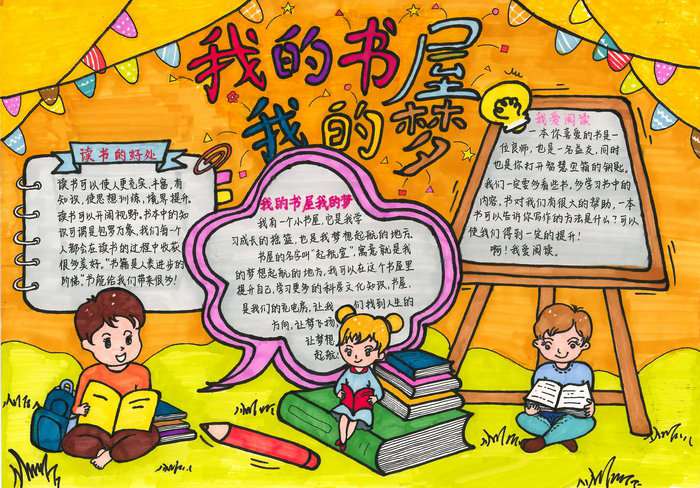 我的书屋
我的梦
读书的好处
读书可以使人更充实、丰富,有
知识,使思想训练,境界提升。
读书可以开阔视野。书本中的知
识可谓是包罗万象,我们每一个
人都会在读书的过程中收获
很多美好。“书籍是人类进步的
阶梯”,书能给我们带来很多!
我的书屋我的梦
我有一个小书屋,它是我学
习成长的摇篮,也是我梦想起航的地方。
书屋的名字叫“起航室”,寓意就是我
的梦想起航的地方,我可以在这个书屋里
提升自己,学习更多的科学文化知识,书屋,
是我们的充电房,让我们找到人生的
方向,让梦飞扬,
让梦想
起航!
我爱阅读
一本你喜爱的书是一
位良师,也是一名益友,同时
也是你打开智慧宝箱的钥匙。
我们一定要多看些书,多学习书中的
内容。书对我们有很大的帮助,一本
书可以告诉你写作的方法是什么?可以
使我们得到一定的提升!
啊!我爱阅读。